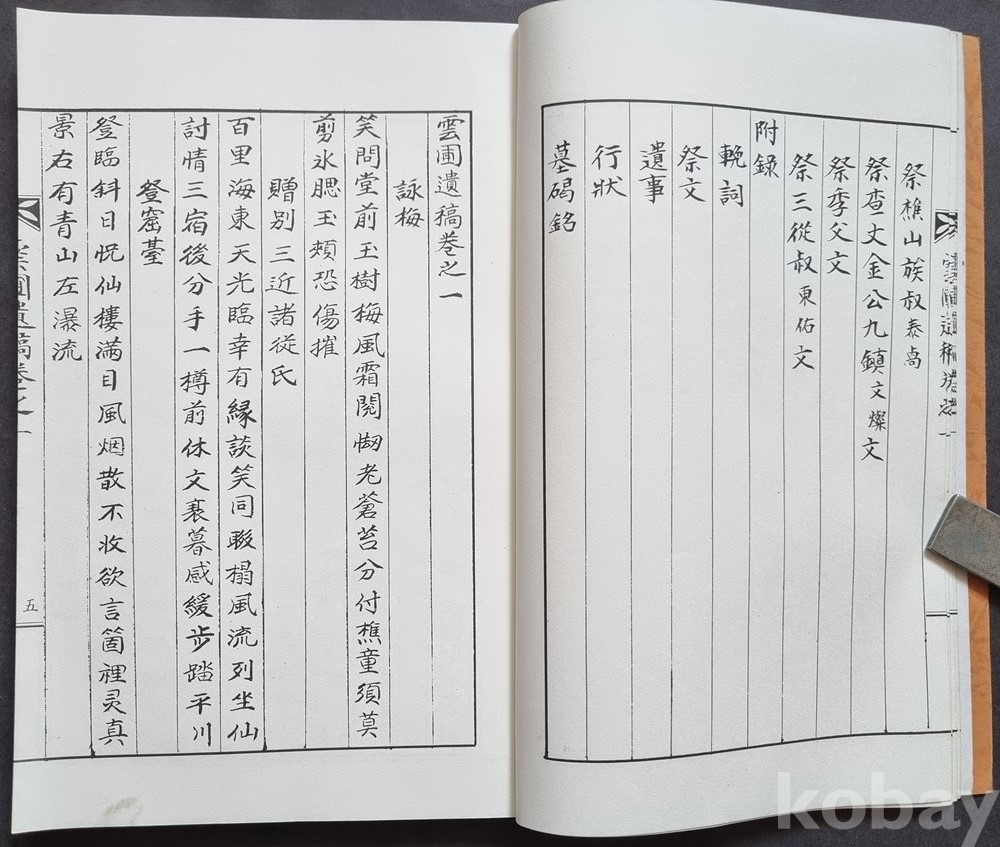 祭樵山族叔泰卨
祭查丈金公九鎮文燦文
祭季父文
祭三從叔東佑文
附錄
輓詞
祭文
遺事
行狀
墓碣銘
雲圃遺稿卷之一
詠梅
笑問堂前玉樹梅風霜閱㥘老蒼苔分付樵童須莫
剪氷腮玉頰恐傷摧
贈別三近諸從氏
百里海東天光臨幸有緣談笑同聯榻風流列坐仙
討情三宿後分手一樽前休文衰暮感緩步踏平川
登窟臺
登臨斜日怳仙樓滿目風烟散不收欲言箇裡灵真
景右有青山左瀑流
雲圃遺稿卷之一
五
kobay